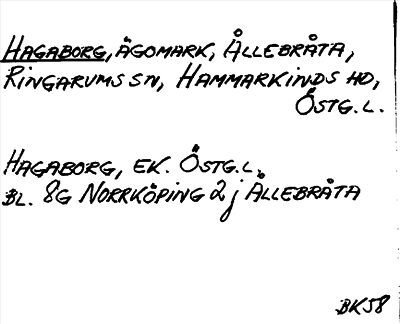 HAGABORG, ÄGOMARK, ÅLLEBRÅTA,
RINGARUMS SN, HAMMARKINDS HD,
ÖSTG.L.
HAGABORG, EK. ÖSTG.L.
BL. 8G NORRKÖPING 2j ÅLLEBRÅTA
BK58